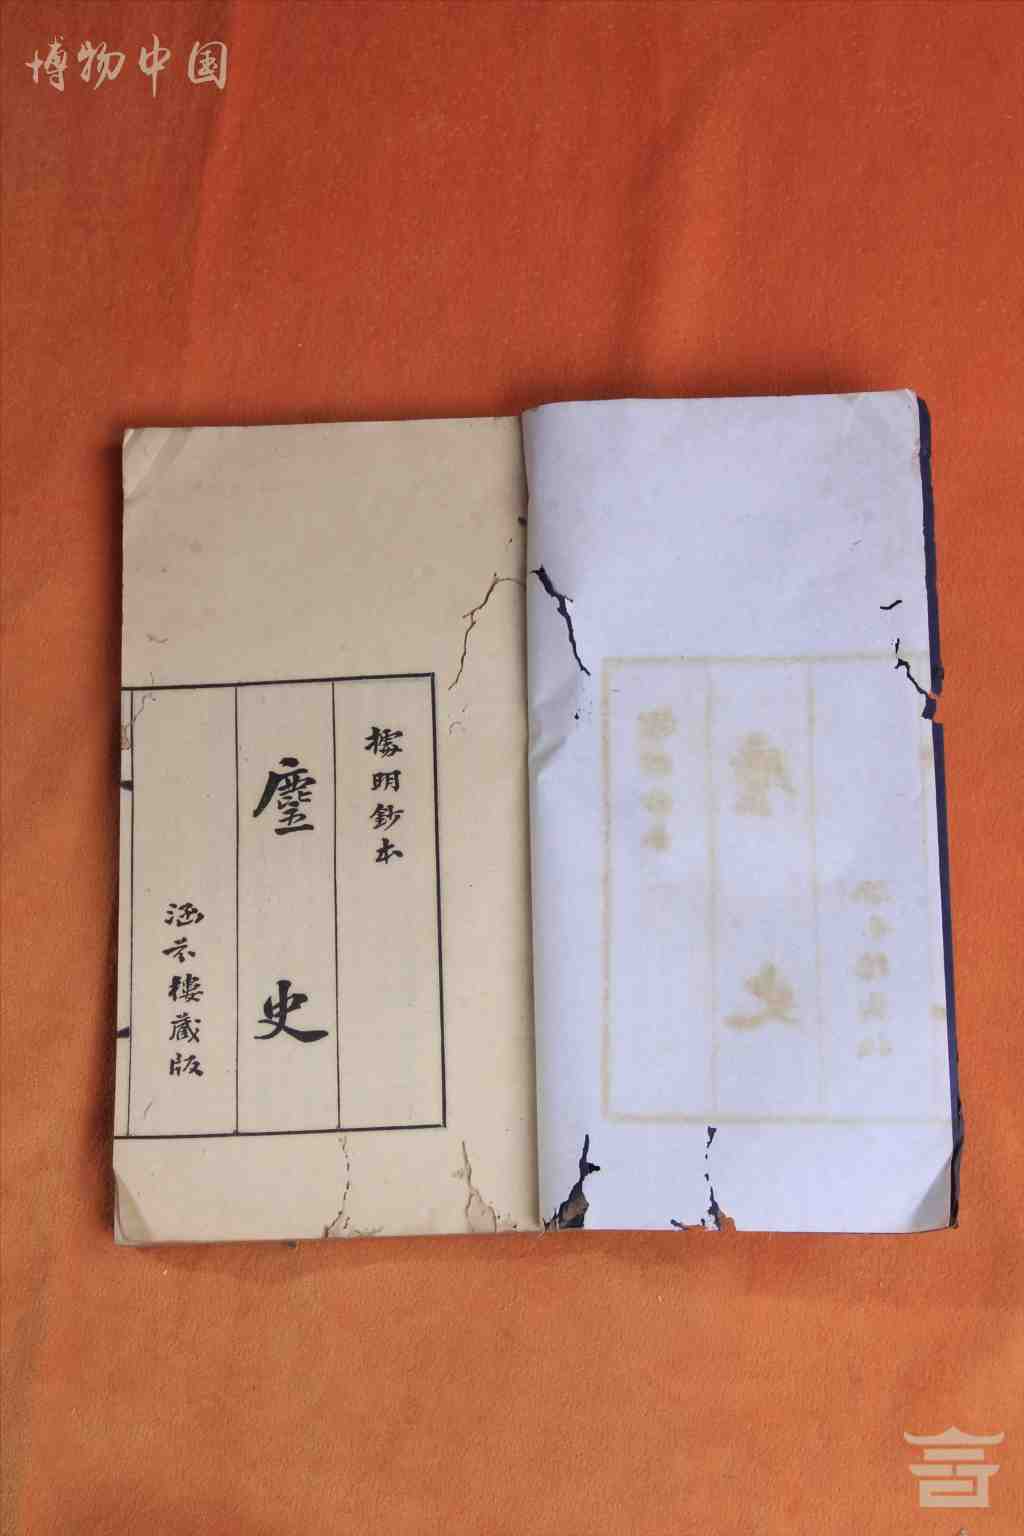 博物中国
據明鈔本
麈史
涵芬樓藏版